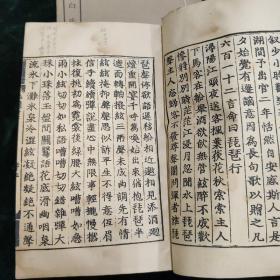 湖間予出官二年恬然自安感斯人言是
夕始覺有遷謫意因為長句歌以贈之凡
六百一十二言命曰琵琶行
潯陽江頭夜送客楓葉荻花秋索索主人
下馬客在船舉酒欲飲無管絃醉不成歡
慘將別別時茫茫江浸月忽聞水上琵琶
聲主人忘歸客不發尋聲暗問彈者誰琵
琶聲停欲語遲移船相近邀相見添酒廻
燈重開宴千呼萬喚始出來猶抱琵琶半
遮面轉軸撥絃三兩聲未成曲調先有情
絃絃掩抑聲聲思似訴平生不得意低眉
信手續續彈說盡心中無限事輕攏慢撚
抹復挑初為霓裳後綠腰大絃嘈嘈如急
雨小絃切切如私語嘈嘈切切錯雜彈大
珠小珠落玉盤間關鶯語花底滑幽咽泉
流氷下灘氷泉冷澀絃凝絕凝絕不通聲